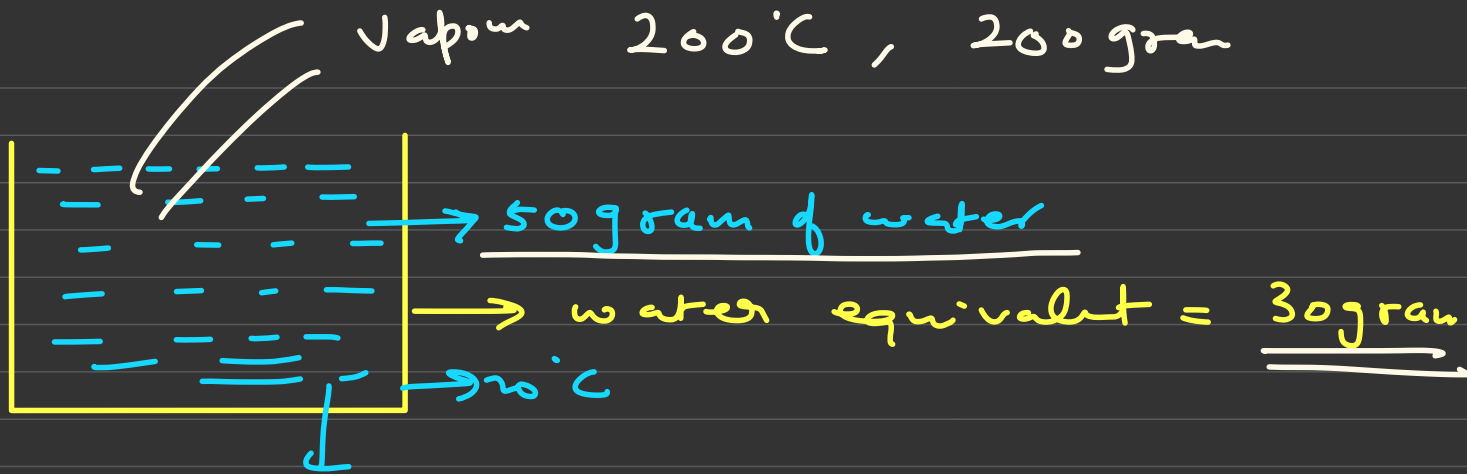 Vapour 200°C, 200 gram
50 gram of water
water equivalent = 30 gram
°C